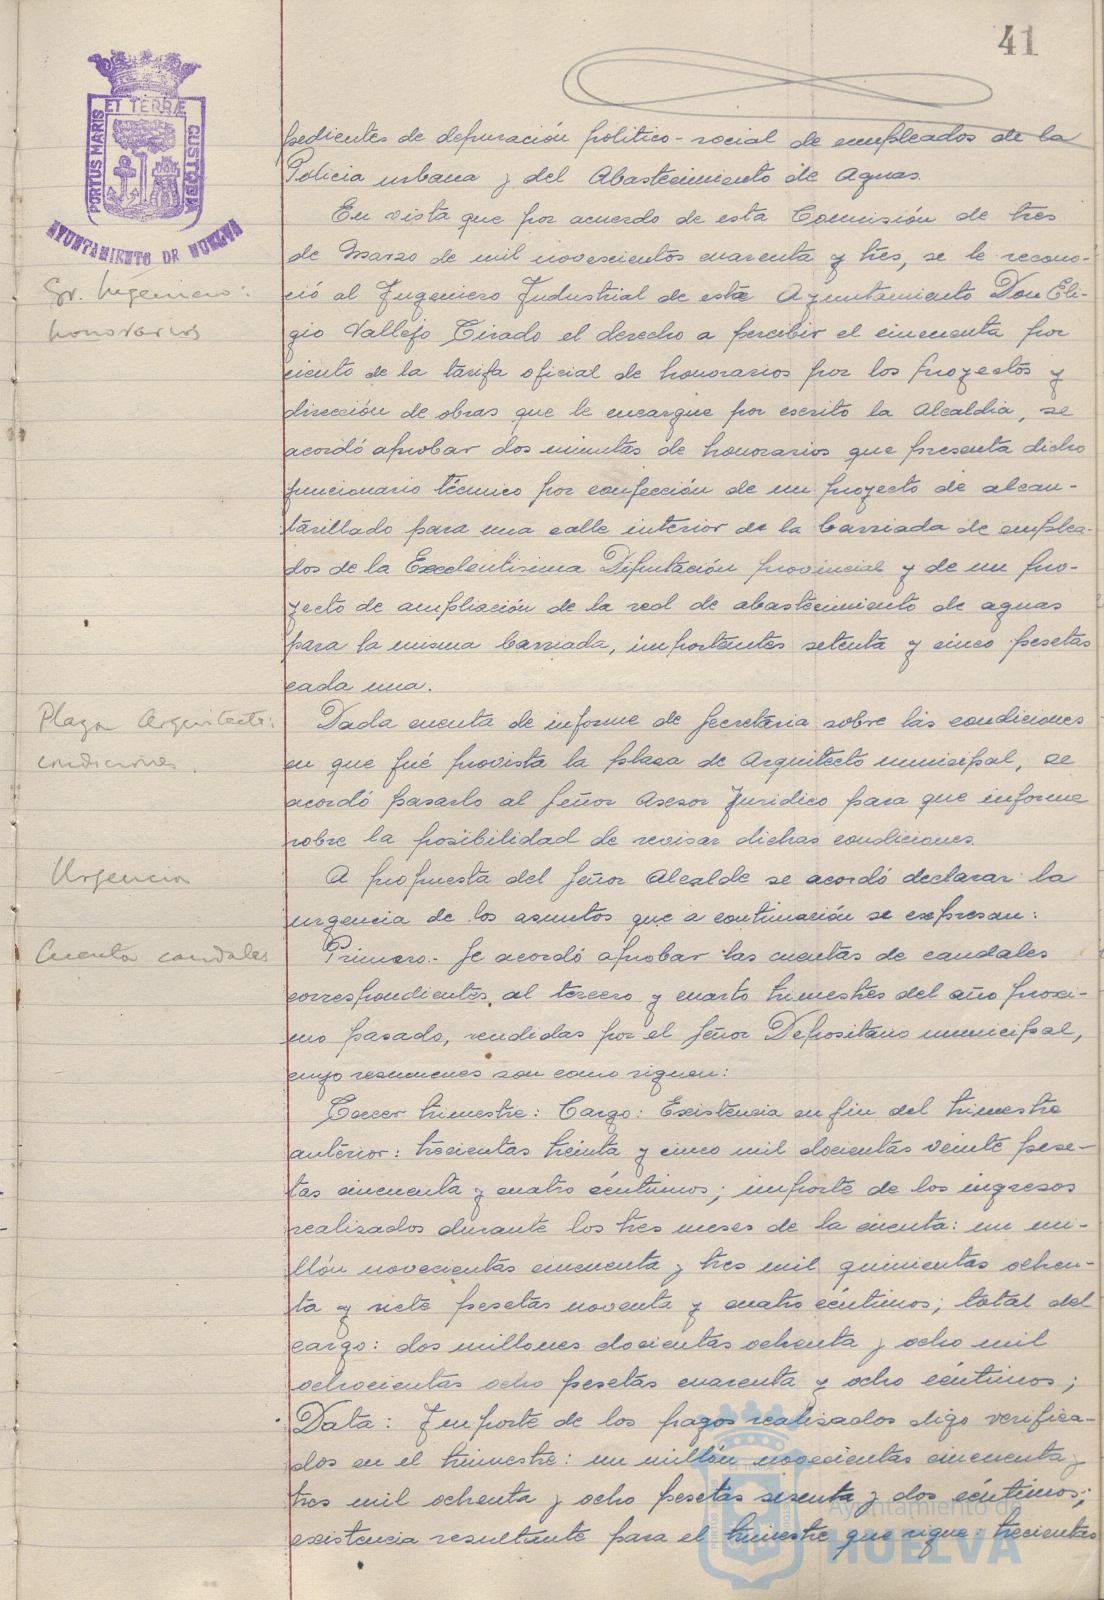 41
PORTUS MARIS ET TERRÆ CUSTODIA
AYUNTAMIENTO DE HUELVA
pedientes de depuración politico-social de empleados de la
Policia urbana y del Abastecimiento de Aguas.
En vista que por acuerdo de esta Comisión de tres
de Marzo de mil novescientos cuarenta y tres, se le recono-
Sr. Ingeniero:
ció al Ingeniero Industrial de este Ayuntamiento Don Eli-
honorarios
gio Vallejo Tirado el derecho a percibir el cincuenta por
ciento de la tarifa oficial de honorarios por los proyectos y
dirección de obras que le encargue por escrito la Alcaldia, se
acordó aprobar dos minutas de honorarios que presenta dicho
funcionario técnico por confección de un proyecto de alcan-
tarillado para una calle interior de la barriada de emplea-
dos de la Excelentisima Diputación provincial y de un pro-
yecto de ampliación de la red de abastecimiento de aguas
para la misma barriada, importantes setenta y cinco pesetas
cada una.
Plaza Arquitecto:
Dada cuenta de informe de Secretaria sobre las condiciones
condiciones.
en que fué provista la plaza de Arquitecto municipal, se
acordó pasarlo al Señor Asesor Juridico para que informe
sobre la posibilidad de revisar dichas condiciones.
Urgencia
A propuesta del Señor Alcalde se acordó declarar la
urgencia de los asuntos que a continuación se expresan:
Cuenta caudales
Primero.- Se acordó aprobar las cuentas de caudales
correspondientes al tercero y cuarto trimestres del año proxi-
mo pasado, rendidas por el Señor Depositario municipal,
cuyo resumenes son como siguen:
Tercer trimestre: Cargo: Existencia en fin del trimestre
anterior: trecientas treinta y cinco mil docientas veinte pese-
tas cincuenta y cuatro céntimos; importe de los ingresos
realizados durante los tres meses de la cuenta: un mi-
llón novecientas cincuenta y tres mil quinientas ochen-
ta y siete pesetas noventa y cuatro céntimos; total del
cargo: dos millones docientas ochenta y ocho mil
ochocientas ocho pesetas cuarenta y ocho céntimos;
Data: Importe de los pagos realizados digo verifica-
dos en el trimestre: un millón novecientas cincuenta y
tres mil ochenta y ocho pesetas sesenta y dos céntimos;
existencia resultante para el trimestre que sigue: trecientas
Ayuntamiento de
HUELVA